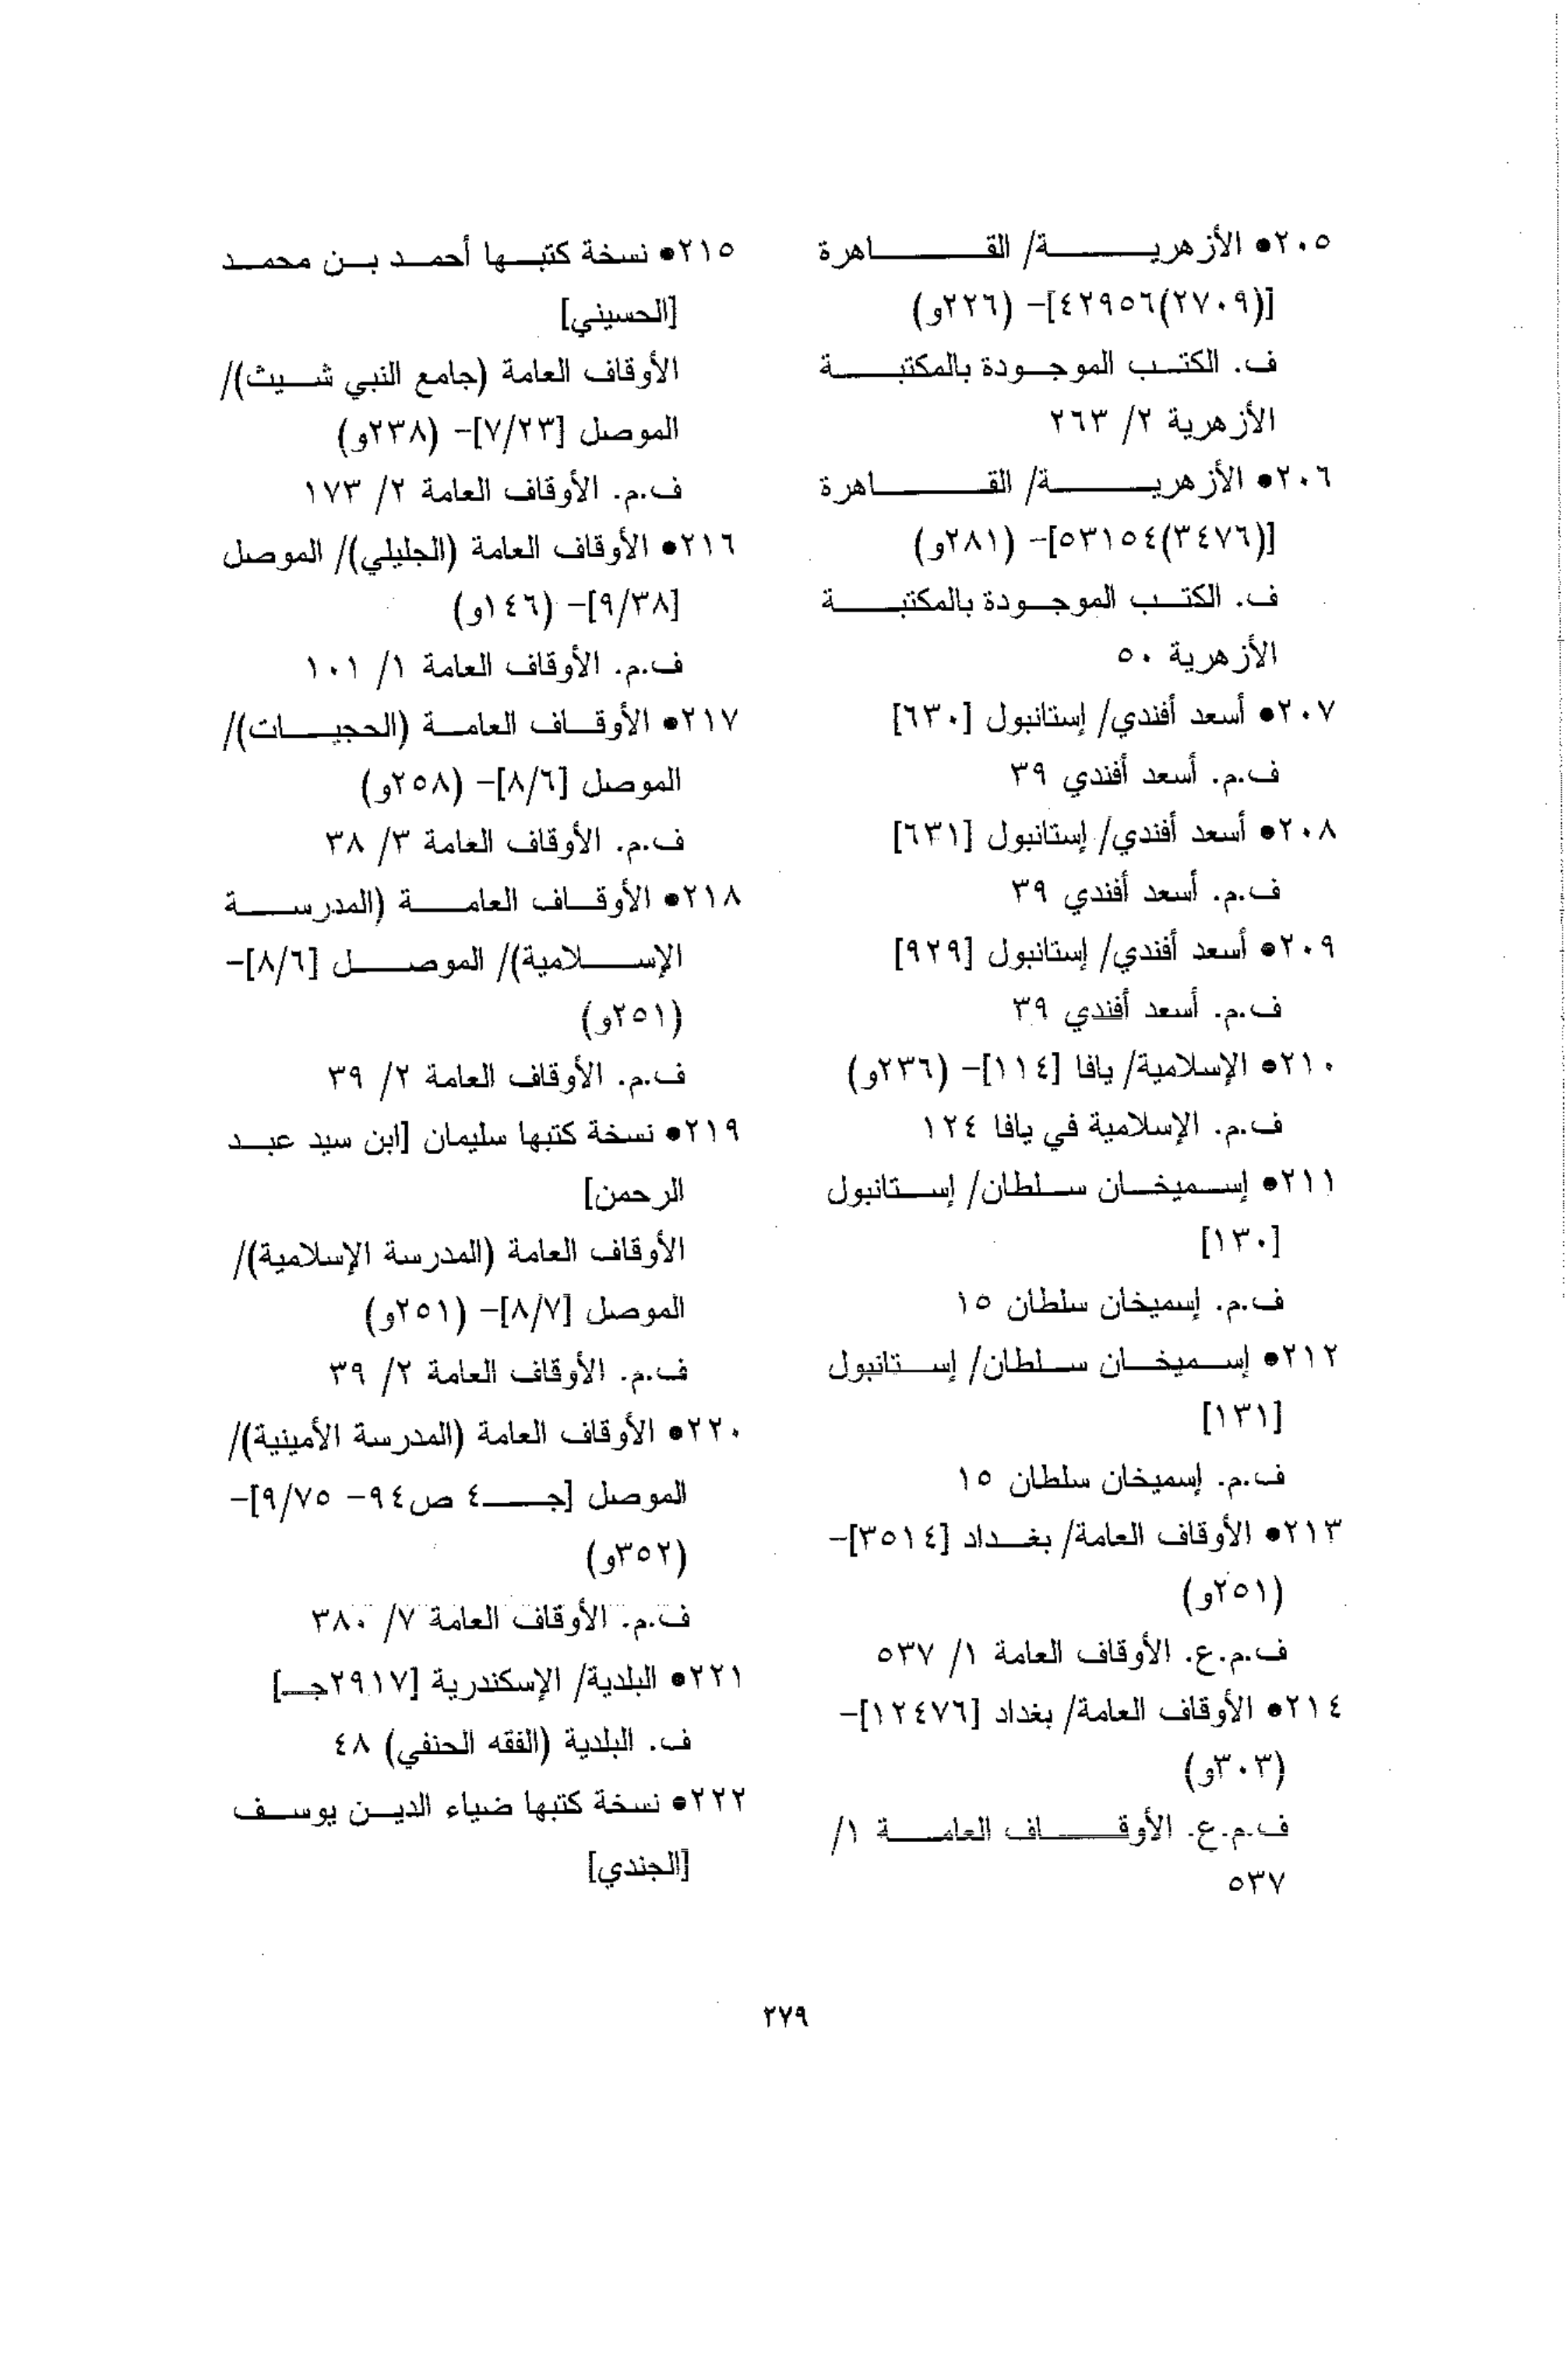 ٢٠٥● الأزهرية/ القاهرة
[(٢٧٠٩)٤٢٩٥٦]- (٢٢٦و)
ف. الكتب الموجودة بالمكتبة
الأزهرية ٢/ ٢٦٣
٢٠٦● الأزهرية/ القاهرة
[(٣٤٧٦)٥٣١٥٤]- (٢٨١و)
ف. الكتب الموجودة بالمكتبة
الأزهرية ٥٠
٢٠٧● أسعد أفندي/ إستانبول [٦٣٠]
ف.م. أسعد أفندي ٣٩
٢٠٨● أسعد أفندي/ إستانبول [٦٣١]
ف.م. أسعد أفندي ٣٩
٢٠٩● أسعد أفندي/ إستانبول [٩٢٩]
ف.م. أسعد أفندي ٣٩
٢١٠● الإسلامية/ يافا [١١٤]- (٢٣٦و)
ف.م. الإسلامية في يافا ١٢٤
٢١١● إسميخان سلطان/ إستانبول
[١٣٠]
ف.م. إسميخان سلطان ١٥
٢١٢● إسميخان سلطان/ إستانبول
[١٣١]
ف.م. إسميخان سلطان ١٥
٢١٣● الأوقاف العامة/ بغداد [٣٥١٤]-
(٢٥١و)
ف.م.ع. الأوقاف العامة ١/ ٥٣٧
٢١٤● الأوقاف العامة/ بغداد [١٢٤٧٦]-
(٣٠٣و)
ف.م.ع. الأوقاف العامة ١/
٥٣٧
٢١٥● نسخة كتبها أحمد بن محمد
[الحسيني]
الأوقاف العامة (جامع النبي شيث)/
الموصل [٧/٢٣]- (٢٣٨و)
ف.م. الأوقاف العامة ٢/ ١٧٣
٢١٦● الأوقاف العامة (الجليلي)/ الموصل
[٩/٣٨]- (١٤٦و)
ف.م. الأوقاف العامة ١/ ١٠١
٢١٧● الأوقاف العامة (الحجيات)/
الموصل [٨/٦]- (٢٥٨و)
ف.م. الأوقاف العامة ٣/ ٣٨
٢١٨● الأوقاف العامة (المدرسة
الإسلامية)/ الموصل [٨/٦]-
(٢٥١و)
ف.م. الأوقاف العامة ٢/ ٣٩
٢١٩● نسخة كتبها سليمان [ابن سيد عبد
الرحمن]
الأوقاف العامة (المدرسة الإسلامية)/
الموصل [٨/٧]- (٢٥١و)
ف.م. الأوقاف العامة ٢/ ٣٩
٢٢٠● الأوقاف العامة (المدرسة الأمينية)/
الموصل [جـ٤ ص٩٤- ٩/٧٥]-
(٣٥٢و)
ف.م. الأوقاف العامة ٧/ ٣٨٠
٢٢١● البلدية/ الإسكندرية [٢٩١٧جـ]
ف. البلدية (الفقه الحنفي) ٤٨
٢٢٢● نسخة كتبها ضياء الدين يوسف
[الجندي]
٢٧٩